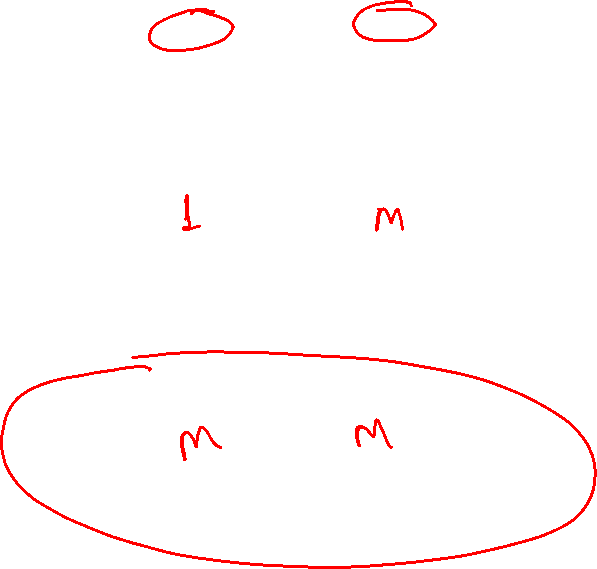 1 M
M M